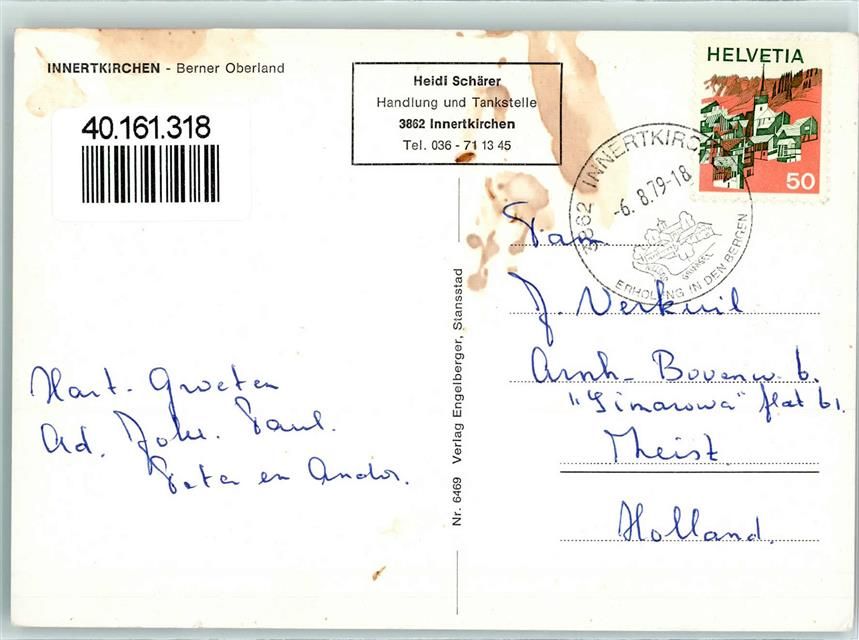 INNERTKIRCHEN - Berner Oberland
40.161.318
Heidi Schärer
Handlung und Tankstelle
3862 Innertkirchen
Tel. 036 - 71 13 45
HELVETIA
50
3862 INNERTKIRCH
-6. 8.79-18
GRIMSEL
ERHOLUNG IN DEN BERGEN
Fam
J. Verkuil
Arnh- Bovenw. 6.
flat 61.
Holland.
Hart. Groeten
Ad. Paul.
Peter en Andor.
Nr. 6469 Verlag Engelberger, Stansstad